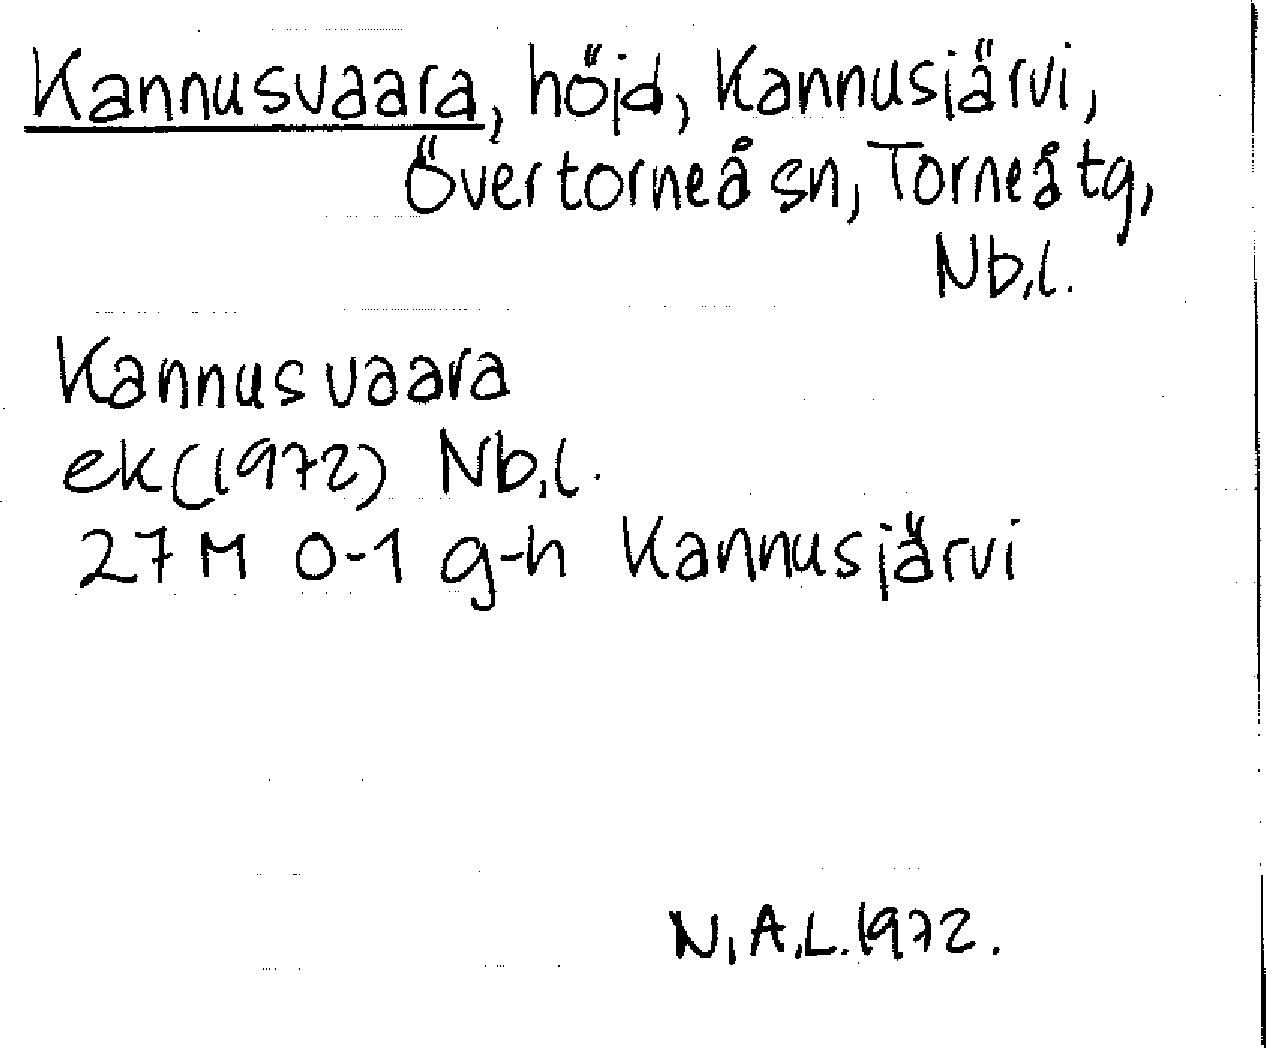 Kannusvaara, höjd, Kannusjärvi,
Övertorneå sn, Torneå tg,
Nb.l.
Kannusvaara
ek (1972) Nb.l.
27 M 0-1 g-h Kannusjärvi
N.A.L. 1972.